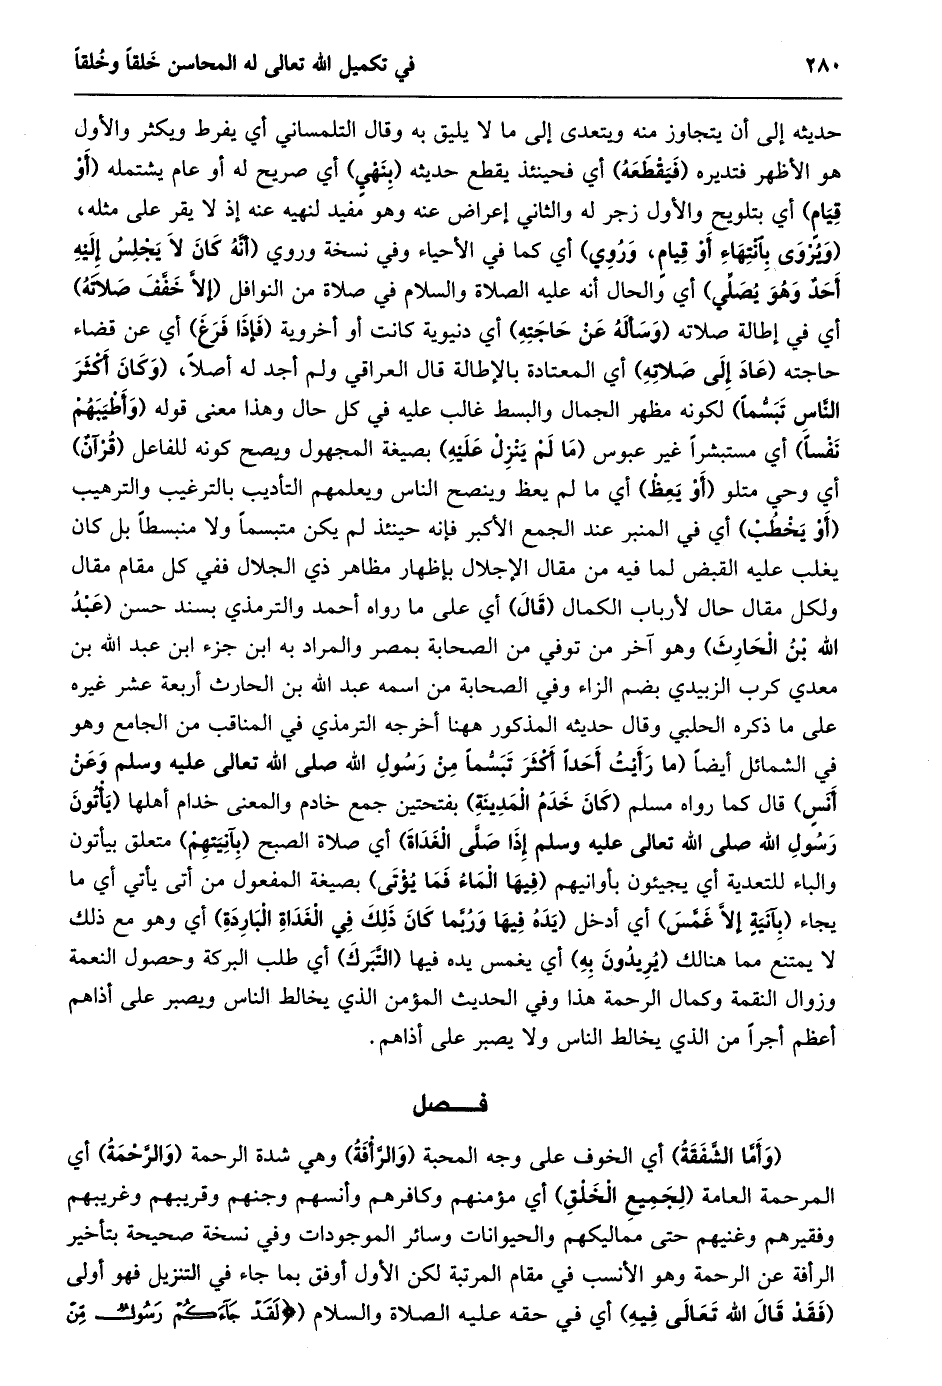 ٢٨٠
في تكميل الله تعالى له المحاسن خَلقاً وخُلقاً
حديثه إلى أن يتجاوز منه ويتعدى إلى ما لا يليق به وقال التلمساني أي يفرط ويكثر والأول
هو الأظهر فتديره (فَيَقْطَعَهُ) أي فحينئذ يقطع حديثه (بِنَهْيٍ) أي صريح له أو عام يشتمله (أَوْ
قِيَامٍ) أي بتلويح والأول زجر له والثاني إعراض عنه وهو مفيد لنهيه عنه إذ لا يقر على مثله،
(وَيُرْوَى بِٱنْتِهَاءِ أَوْ قِيامٍ، وَرُوِي) أي كما في الأحياء وفي نسخة وروي (أَنَّهُ كَانَ لاَ يَجْلِسُ إِلَيْهِ
أَحَدٌ وَهُوَ يُصَلِّي) أي والحال أنه عليه الصلاة والسلام في صلاة من النوافل (إِلاَّ خَفَّفَ صَلاَتَهُ)
أي في إطالة صلاته (وَسَأَلَهُ عَنْ حَاجَتِهِ) أي دنيوية كانت أو أخروية (فَإِذَا فَرَغَ) أي عن قضاء
حاجته (عَادَ إِلَى صَلاتِهِ) أي المعتادة بالإطالة قال العراقي ولم أجد له أصلاً، (وَكَانَ أَكْثَرَ
النَّاسِ تَبَسُّماً) لكونه مظهر الجمال والبسط غالب عليه في كل حال وهذا معنى قوله (وَأَطْيَبَهُمْ
نَفْساً) أي مستبشراً غير عبوس (مَا لَمْ يَنْزِلْ عَلَيْهِ) بصيغة المجهول ويصح كونه للفاعل (قُرْآنٌ)
أي وحي متلو (أَوْ يَعِظْ) أي ما لم يعظ وينصح الناس ويعلمهم التأديب بالترغيب والترهيب
(أَوْ يَخْطُبْ) أي في المنبر عند الجمع الأكبر فإنه حينئذ لم يكن متبسماً ولا منبسطاً بل كان
يغلب عليه القبض لما فيه من مقال الإجلال بإظهار مظاهر ذي الجلال ففي كل مقام مقال
ولكل مقال حال لأرباب الكمال (قَالَ) أي على ما رواه أحمد والترمذي بسند حسن (عَبْدُ
الله بْنُ الْحَارِثَ) وهو آخر من توفي من الصحابة بمصر والمراد به ابن جزء ابن عبد الله بن
معدي كرب الزبيدي بضم الزاء وفي الصحابة من اسمه عبد الله بن الحارث أربعة عشر غيره
على ما ذكره الحلبي وقال حديثه المذكور ههنا أخرجه الترمذي في المناقب من الجامع وهو
في الشمائل أيضاً (ما رَأَيْتُ أَحَداً أَكْثَرَ تَبَسُّماً مِنْ رَسُولِ الله صلى الله تعالى عليه وسلم وَعَنْ
أَنَسٍ) قال كما رواه مسلم (كَانَ خَدَمُ الْمَدِينَةِ) بفتحتين جمع خادم والمعنى خدام أهلها (يَأْتُونَ
رَسُولِ الله صلى الله تعالى عليه وسلم إِذَا صَلَّى الْغَدَاةَ) أي صلاة الصبح (بِآنِيَتِهِمْ) متعلق بيأتون
والباء للتعدية أي يجيئون بأوانيهم (فِيهَا الْمَاءُ فَمَا يُؤْتَى) بصيغة المفعول من أتى يأتي أي ما
يجاء (بِآنَيَةٍ إِلاَّ غَمَّسَ) أي أدخل (يَدَهُ فِيهَا وَرُبَّما كَانَ ذَلِكَ فِي الْغَدَاةِ الْبَارِدَةِ) أي وهو مع ذلك
لا يمتنع مما هنالك (يُرِيدُونَ بِهِ) أي يغمس يده فيها (التَّبَركَ) أي طلب البركة وحصول النعمة
وزوال النقمة وكمال الرحمة هذا وفي الحديث المؤمن الذي يخالط الناس ويصبر على أذاهم
أعظم أجراً من الذي يخالط الناس ولا يصبر على أذاهم.
فــصل
(وَأَمَّا الشَّفَقَةُ) أي الخوف على وجه المحبة (وَالرَّأْفَةُ) وهي شدة الرحمة (وَالرَّحْمَةُ) أي
المرحمة العامة (لِجَمِيعِ الْخَلْقِ) أي مؤمنهم وكافرهم وأنسهم وجنهم وقريبهم وغريبهم
وفقيرهم وغنيهم حتى مماليكهم والحيوانات وسائر الموجودات وفي نسخة صحيحة بتأخير
الرأفة عن الرحمة وهو الأنسب في مقام المرتبة لكن الأول أوفق بما جاء في التنزيل فهو أولى
(فَقَدْ قَالَ الله تَعَالَى فِيهِ) أي في حقه عليه الصلاة والسلام (﴿لَقَدْ جَآءَكُمْ رَسُولٌ مِّنْ